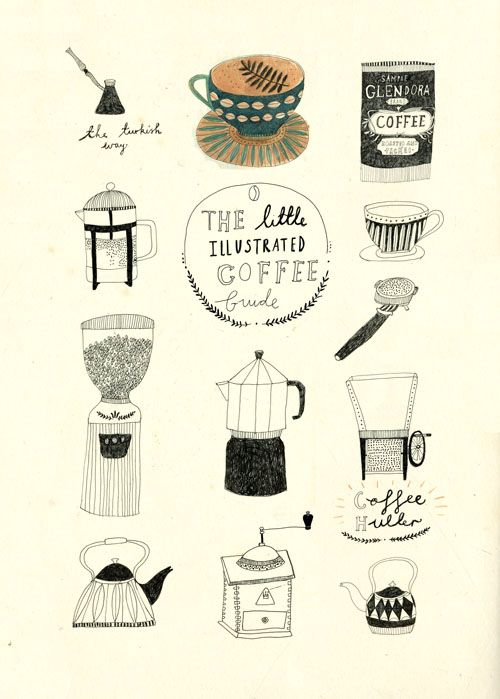 the turkish
way.
SAMPLE
GLENDORA
BRAND
COFFEE
ROASTED AND
PACKED
THE little
ILLUSTRATED
COFFEE
Guide
Coffee
Huller